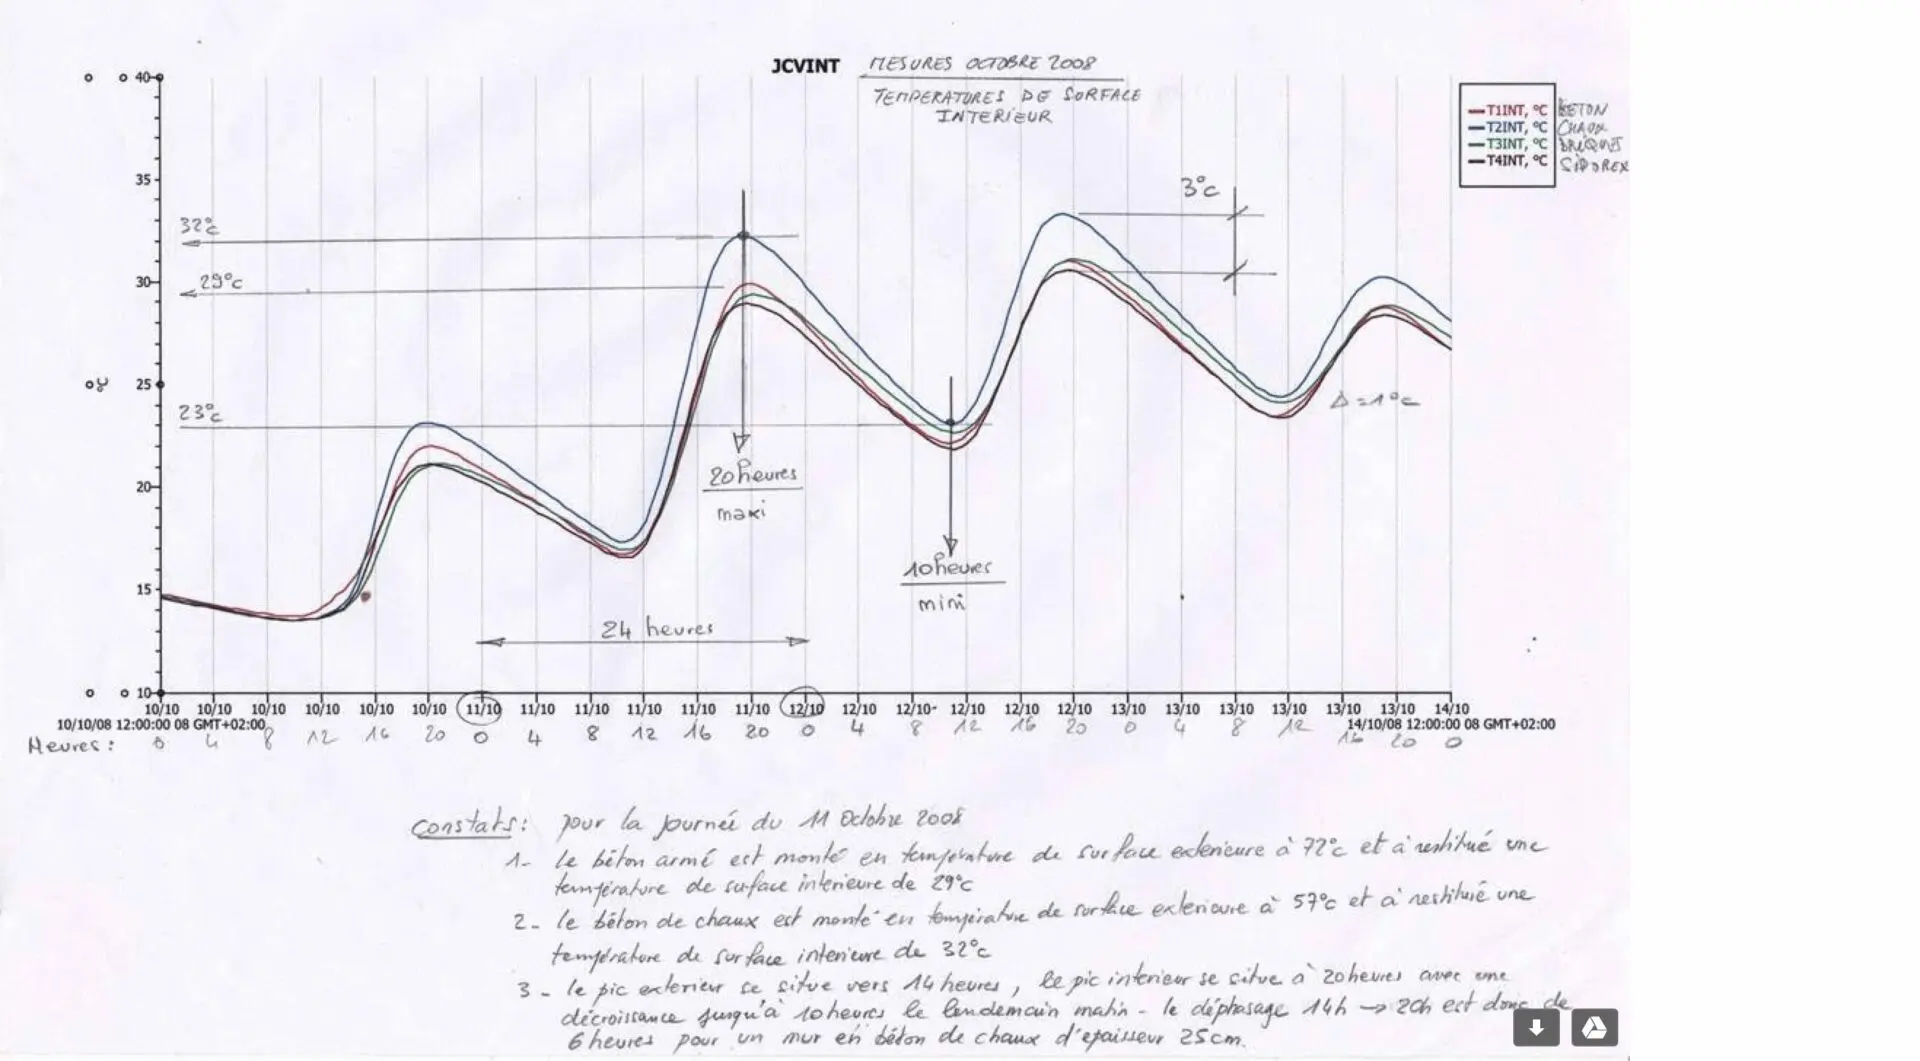 JCVINT MESURES OCTOBRE 2008
TEMPERATURES DE SURFACE
INTERIEUR
T1INT, °C BETON
T2INT, °C CHAUX
T3INT, °C BRIQUES
T4INT, °C SIPOREX
40
35
30
25
20
15
10
°C
32°c
29°c
23°c
3°c
Δ = 1°c
20 heures
maxi
10 heures
mini
24 heures
10/10 10/10 10/10 10/10 10/10 10/10 11/10 11/10 11/10 11/10 11/10 11/10 12/10 12/10 12/10 12/10 12/10 12/10 13/10 13/10 13/10 13/10 13/10 13/10 14/10
10/10/08 12:00:00 08 GMT+02:00 14/10/08 12:00:00 08 GMT+02:00
Heures : 0 4 8 12 16 20 0 4 8 12 16 20 0 4 8 12 16 20 0 4 8 12 16 20 0
Constats : pour la journeé du 11 Octobre 2008
1- le béton armé est monté en température de surface exterieure à 72°c et à restitué une
température de surface interieure de 29°c
2- le béton de chaux est monté en température de surface exterieure à 57°c et à restitué une
température de surface interieure de 32°c
3- le pic exterieur se situe vers 14 heures, le pic interieur se situe à 20 heures avec une
décroissance jusqu'à 10 heures le lendemain matin - le déphasage 14h → 20h est donc de
6 heures pour un mur en béton de chaux d'epaisseur 25cm.